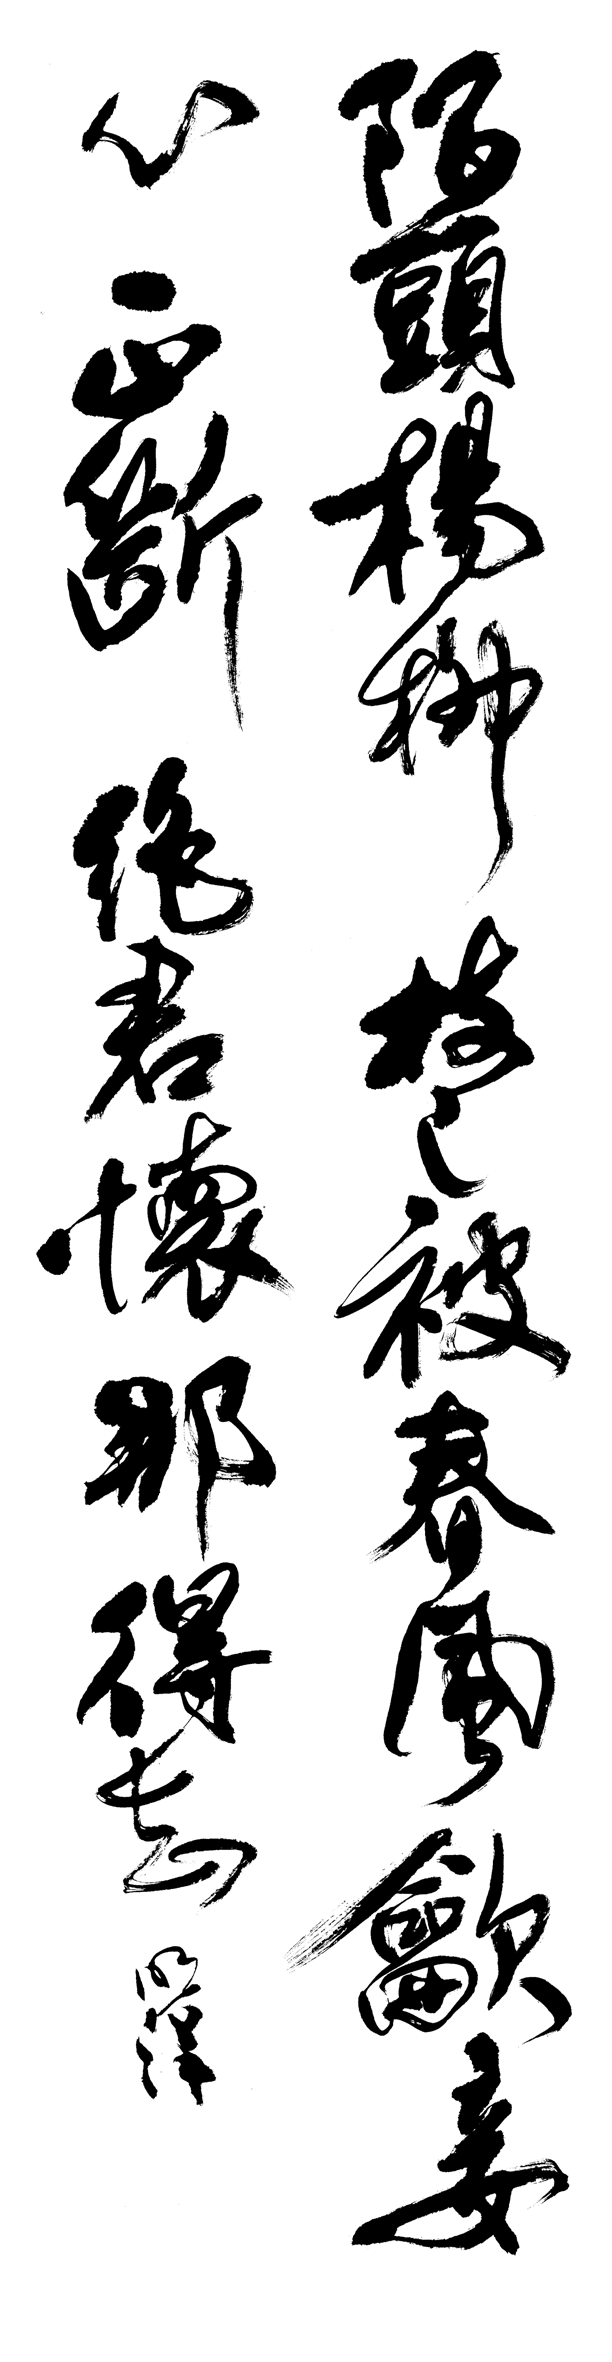 陌頭楊柳枝已被春風龡妾
心正斷絕君懷那得知